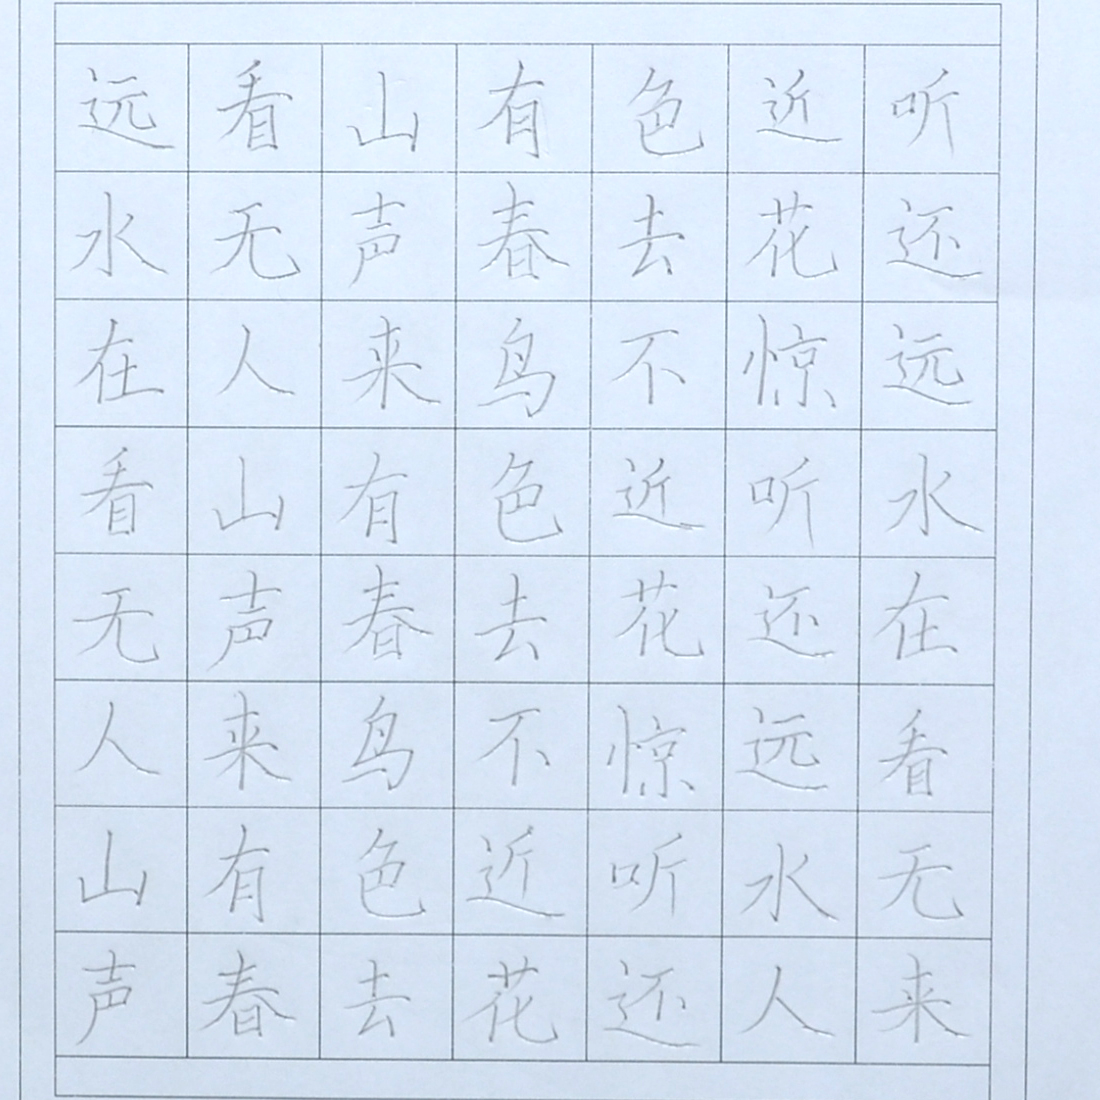 远看山有色近听
水无声春去花还
在人来鸟不惊远
看山有色近听水
无声春去花还在
人来鸟不惊远看
山有色近听水无
声春去花还人来